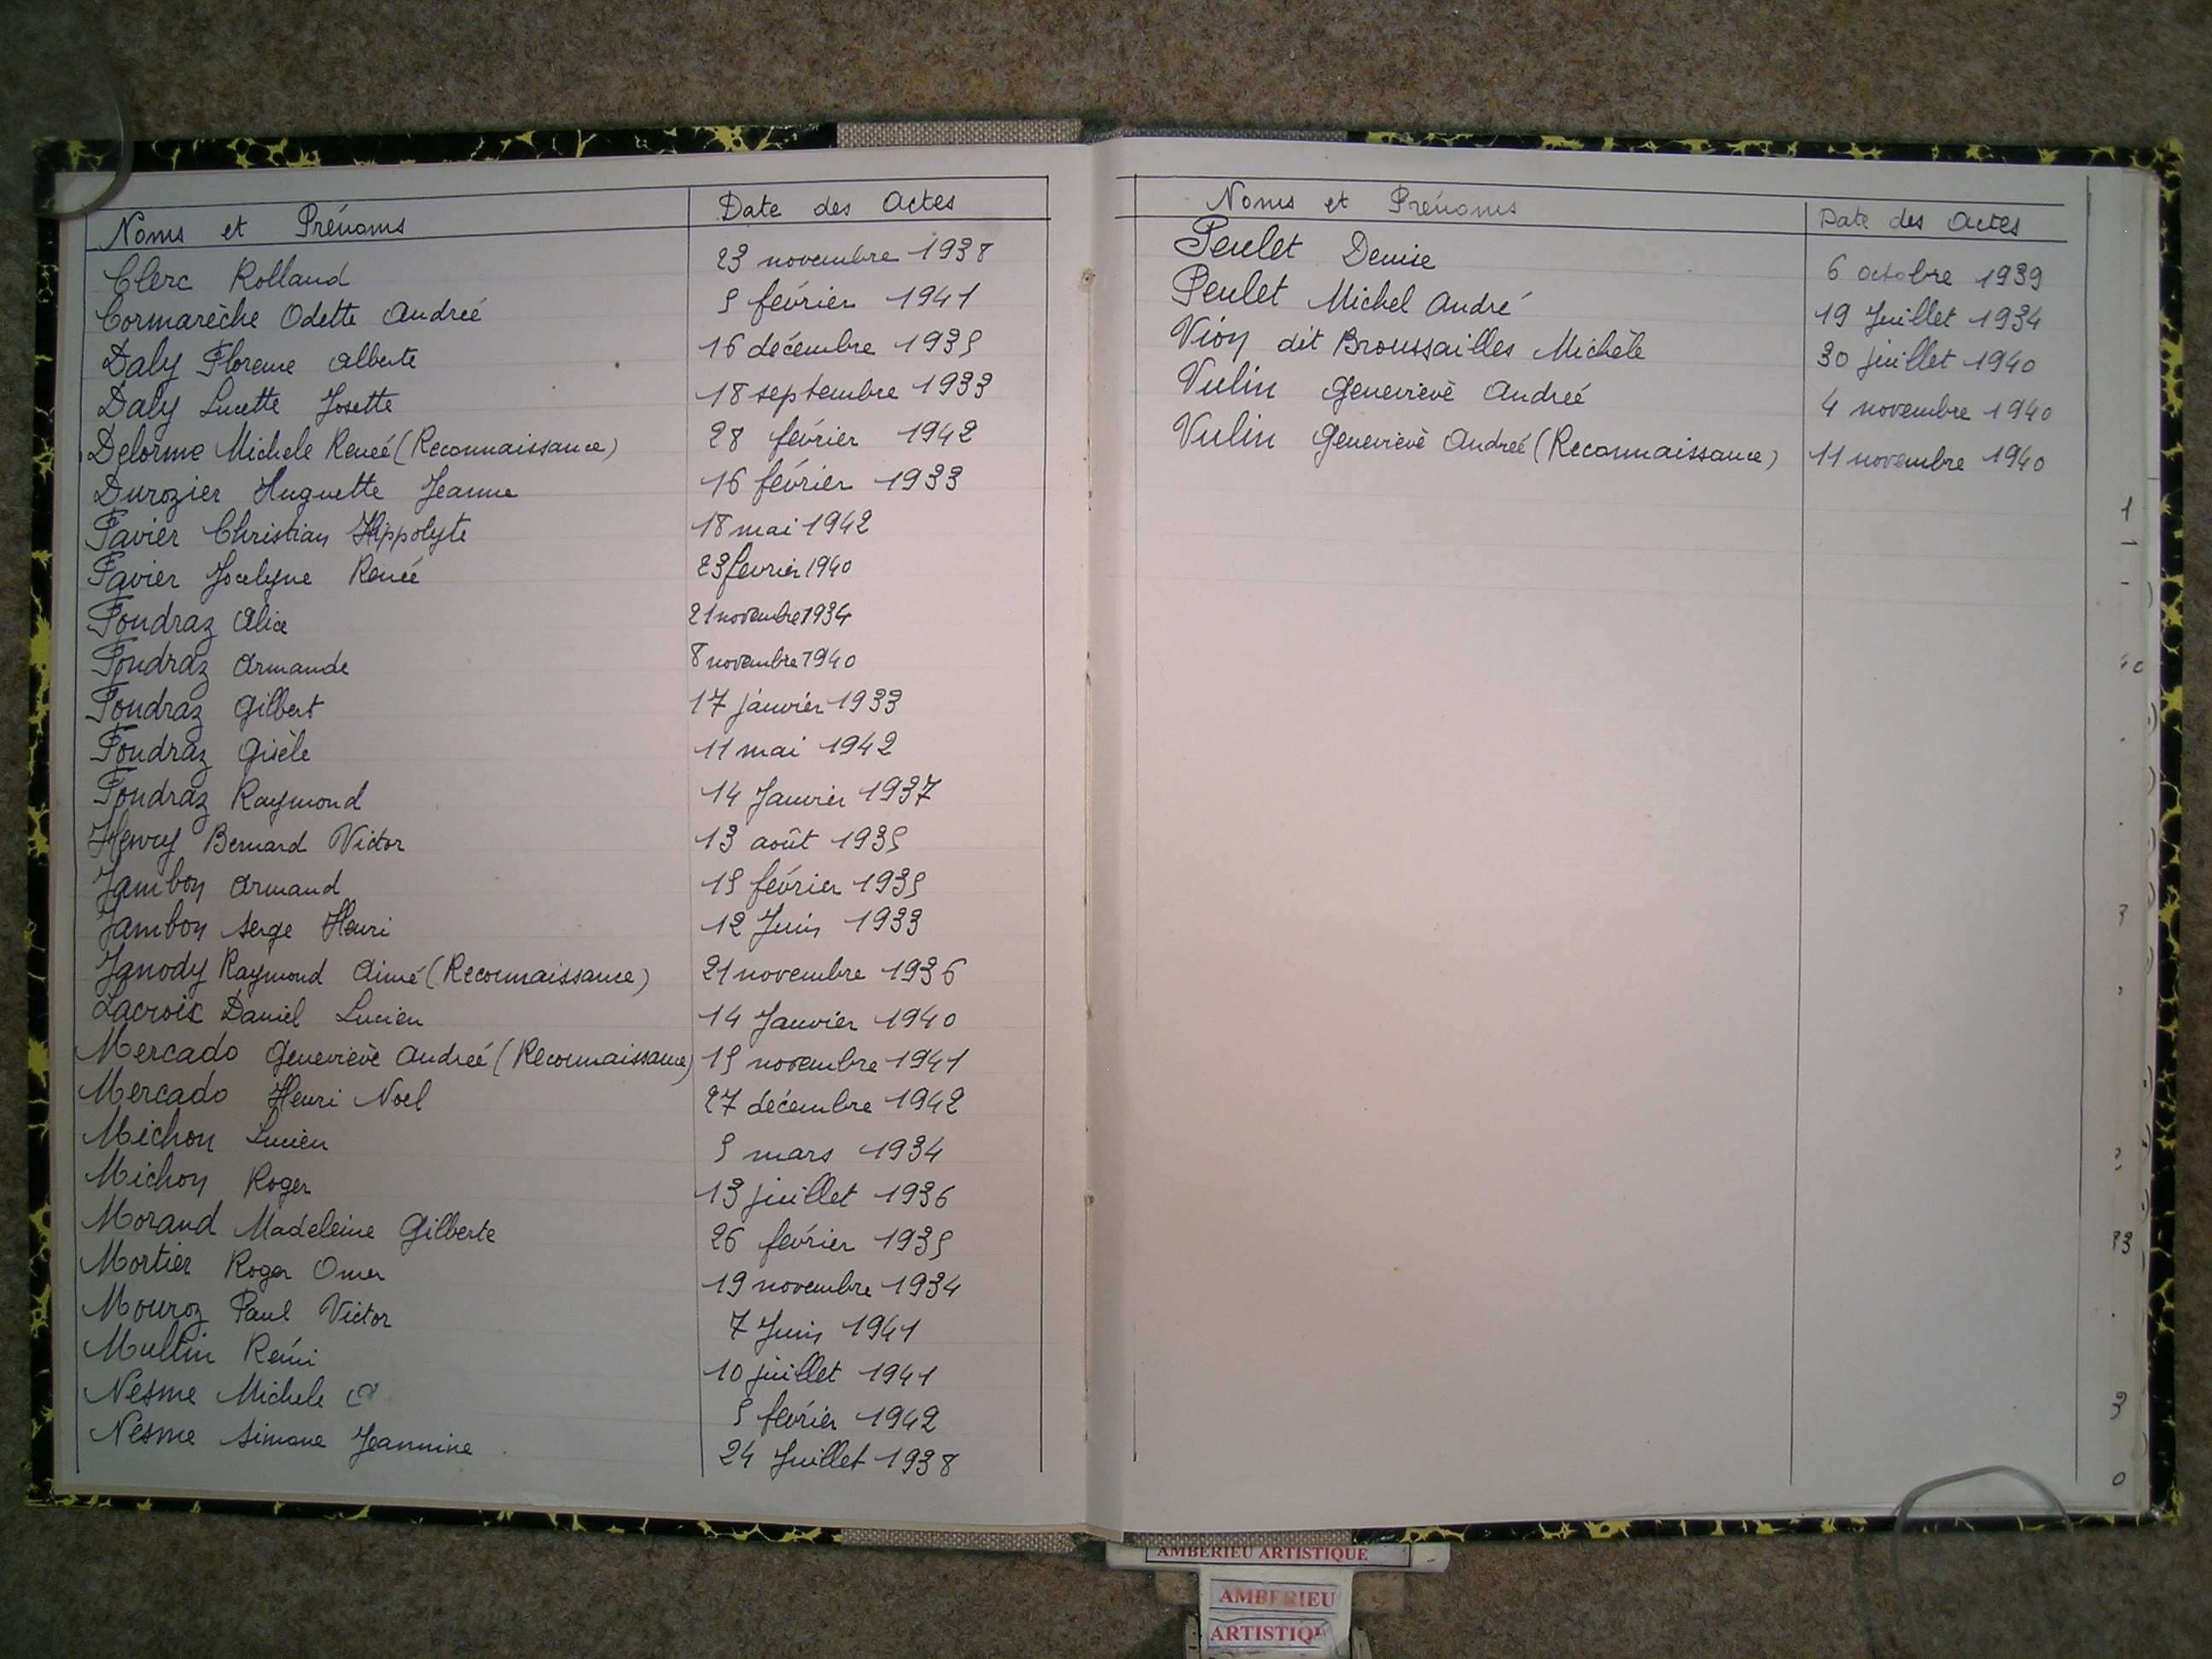 Noms et Prénoms Date des Actes
Clerc Rolland 23 novembre 1938
Cormarèche Odette Andreé 5 février 1941
Daly Florence Alberte 16 décembre 1935
Daly Lucette Josette 18 septembre 1933
Delorme Michele Reneé (Reconnaissance) 28 février 1942
Durozier Huguette Jeanne 16 février 1933
Favier Christian Hippolyte 18 mai 1942
Favier Jocelyne Renée 23 fevrier 1940
Foudraz Alice 21 novembre 1934
Foudraz Armande 8 novembre 1940
Foudraz Gilbert 17 janvier 1933
Foudraz Gisèle 11 mai 1942
Foudraz Raymond 14 Janvier 1937
Henry Bernard Victor 13 août 1935
Jambon Armand 15 février 1935
Jambon Serge Henri 12 Juin 1933
Janody Raymond Aimé (Reconnaissance) 21 novembre 1936
Lacroix Daniel Lucien 14 Janvier 1940
Mercado Genevievè Andreé (Reconnaissance) 15 novembre 1941
Mercado Henri Noel 27 décembre 1942
Michon Lucien 5 mars 1934
Michon Roger 13 juillet 1936
Morand Madeleine Gilberte 26 février 1935
Mortier Roger Omer 19 novembre 1934
Mouroz Paul Victor 7 Juin 1941
Mullin Rémi 10 juillet 1941
Nesme Michele 5 février 1942
Nesme Simone Jeannine 24 Juillet 1938
Noms et Prénoms Date des Actes
Peulet Denise 6 octobre 1939
Peulet Michel André 19 Juillet 1934
Vion dit Broussailles Michèle 30 juillet 1940
Vulin Genevievè Andreé 4 novembre 1940
Vulin Genevievè Andreé (Reconnaissance) 11 novembre 1940
AMBERIEU ARTISTIQUE
AMBERIEU
ARTISTIQU